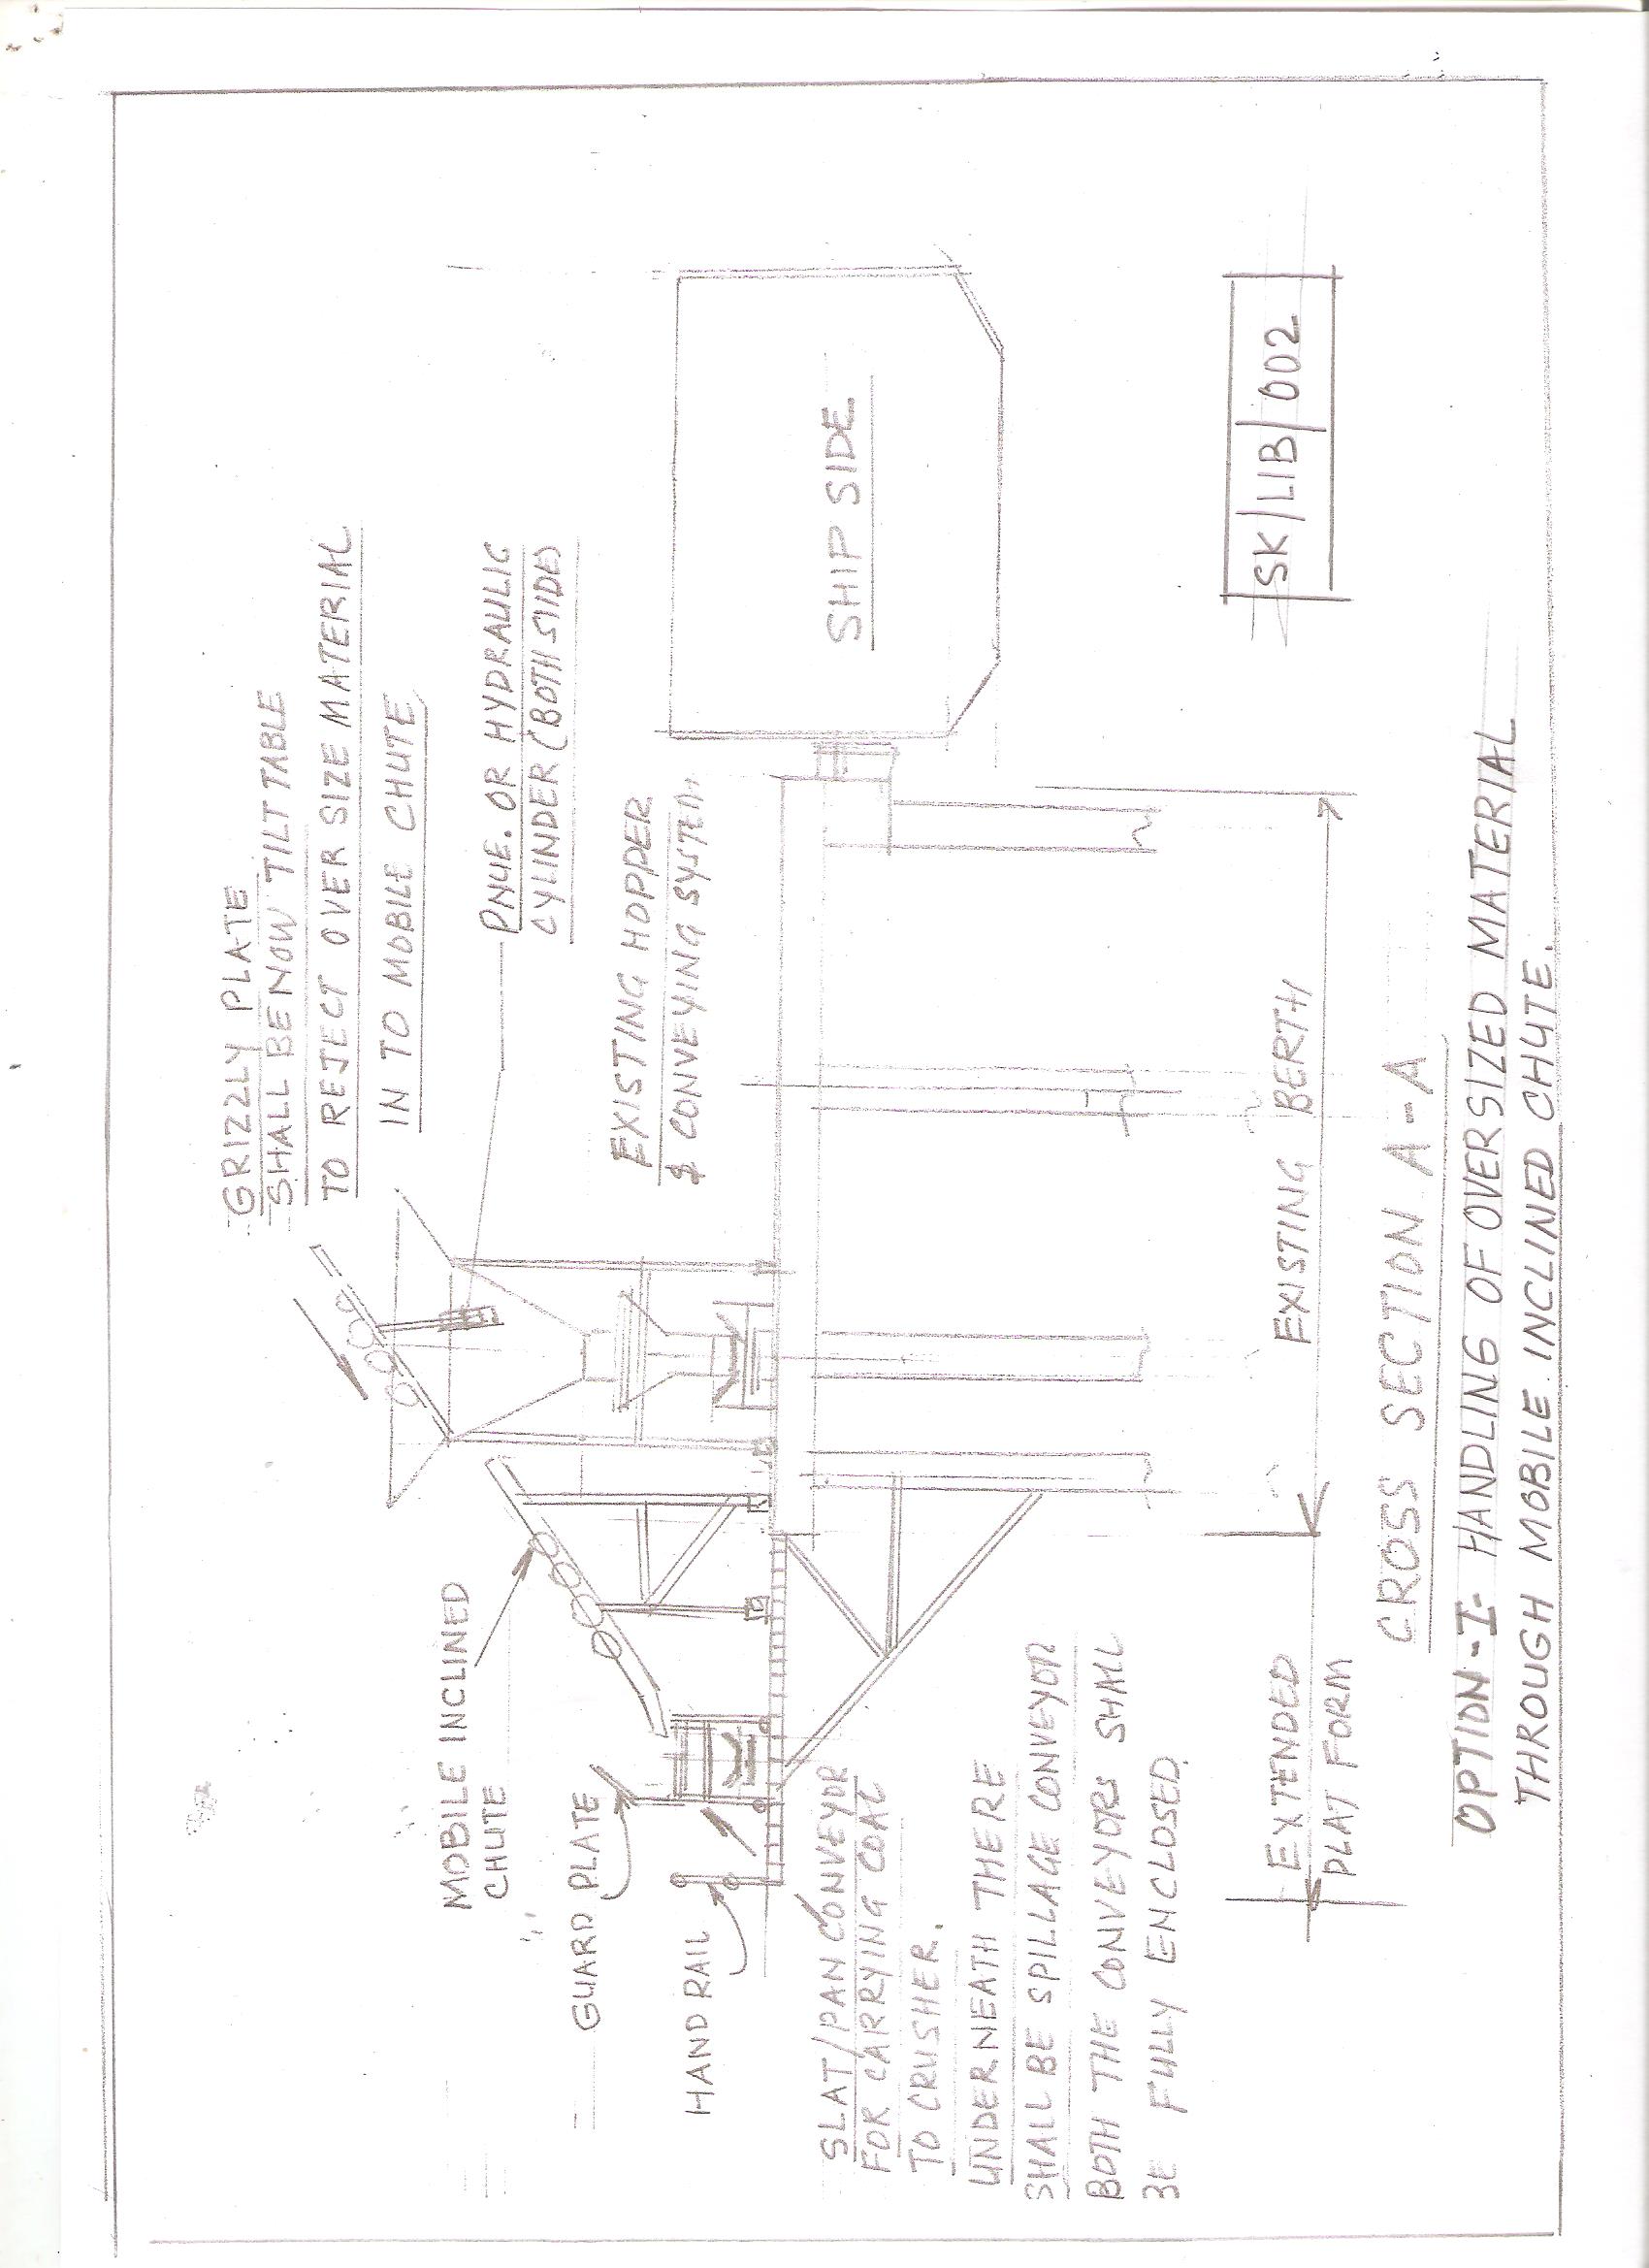 GRIZZLY PLATE
SHALL BE NOW TILTTABLE
TO REJECT OVER SIZE MATERIAL
IN TO MOBILE CHUTE
PNUE. OR HYDRAULIC
CYLINDER (BOTH SIDE)
EXISTING HOPPER
& CONVEYING SYSTEM
SHIP SIDE
MOBILE INCLINED
CHUTE
GUARD PLATE
HAND RAIL
SLAT/PAN CONVEYOR
FOR CARRYING COAL
TO CRUSHER.
UNDERNEATH THERE
SHALL BE SPILLAGE CONVEYOR
BOTH THE CONVEYORS SHALL
BE FULLY ENCLOSED.
EXTENDED
PLAT FORM
EXISTING BERTH
SK/LIB/002
CROSS SECTION A-A
OPTION-I. HANDLING OF OVERSIZED MATERIAL
THROUGH MOBILE INCLINED CHUTE.